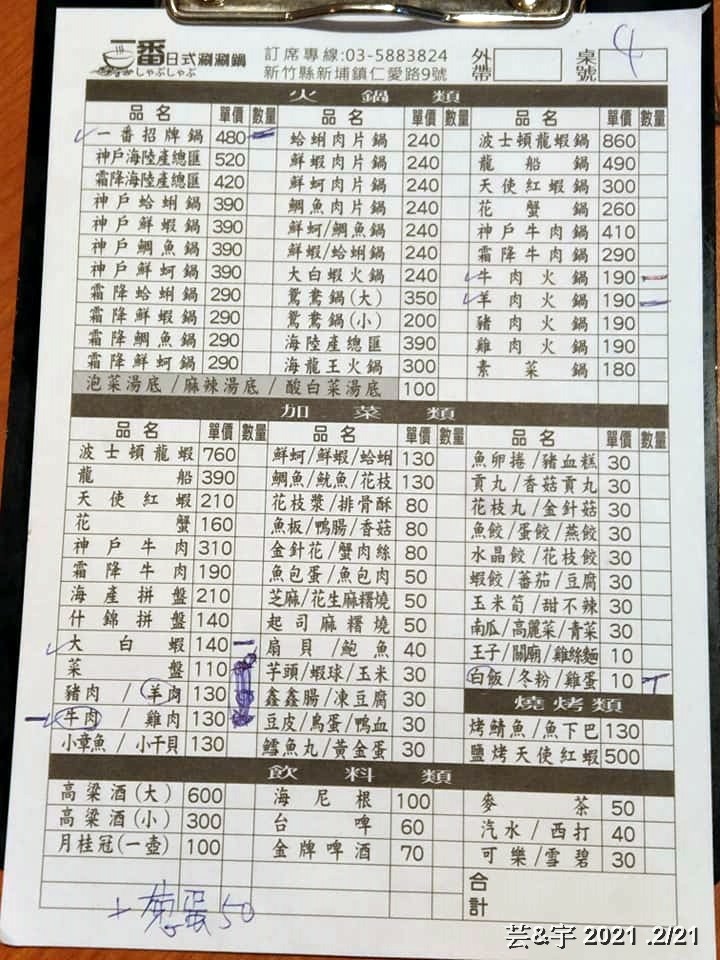 一番日式涮涮鍋 訂席專線:03-5883824 外帶 桌號 4
しゃぶしゃぶ 新竹縣新埔鎮仁愛路9號
火鍋類
品名 單價 數量 品名 單價 數量 品名 單價 數量
一番招牌鍋 480 蛤蜊肉片鍋 240 波士頓龍蝦鍋 860
神戶海陸產總匯 520 鮮蝦肉片鍋 240 龍船鍋 490
霜降海陸產總匯 420 鮮蚵肉片鍋 240 天使紅蝦鍋 300
神戶蛤蜊鍋 390 鯛魚肉片鍋 240 花蟹鍋 260
神戶鮮蝦鍋 390 鮮蚵/鯛魚鍋 240 神戶牛肉鍋 410
神戶鯛魚鍋 390 鮮蝦/蛤蜊鍋 240 霜降牛肉鍋 290
神戶鮮蚵鍋 390 大白蝦火鍋 240 牛肉火鍋 190
霜降蛤蜊鍋 290 鴛鴦鍋(大) 350 羊肉火鍋 190
霜降鮮蝦鍋 290 鴛鴦鍋(小) 200 豬肉火鍋 190
霜降鯛魚鍋 290 海陸產總匯 390 雞肉火鍋 190
霜降鮮蚵鍋 290 海龍王火鍋 300 素菜鍋 180
泡菜湯底/麻辣湯底/酸白菜湯底 100
加菜類
品名 單價 數量 品名 單價 數量 品名 單價 數量
波士頓龍蝦 760 鮮蚵/鮮蝦/蛤蜊 130 魚卵捲/豬血糕 30
龍船 390 鯛魚/魷魚/花枝 130 貢丸/香菇貢丸 30
天使紅蝦 210 花枝漿/排骨酥 80 花枝丸/金針菇 30
花蟹 160 魚板/鴨腸/香菇 80 魚餃/蛋餃/燕餃 30
神戶牛肉 310 金針花/蟹肉絲 80 水晶餃/花枝餃 30
霜降牛肉 190 魚包蛋/魚包肉 50 蝦餃/蕃茄/豆腐 30
海產拼盤 210 芝麻/花生麻糬燒 50 玉米筍/甜不辣 30
什錦拼盤 140 起司麻糬燒 50 南瓜/高麗菜/青菜 30
大白蝦 140 扇貝/鮑魚 40 王子/關廟/雞絲麵 10
菜盤 110 芋頭/蝦球/玉米 30 白飯/冬粉/雞蛋 10
豬肉/羊肉 130 鑫鑫腸/凍豆腐 30 燒烤類
牛肉/雞肉 130 豆皮/鳥蛋/鴨血 30 烤鯖魚/魚下巴 130
小章魚/小干貝 130 鱈魚丸/黃金蛋 30 鹽烤天使紅蝦 500
飲料類
高梁酒(大) 600 海尼根 100 麥茶 50
高梁酒(小) 300 台啤 60 汽水/西打 40
月桂冠(一壺) 100 金牌啤酒 70 可樂/雪碧 30
合計
蔥蛋 50
芸&宇 2021 .2/21